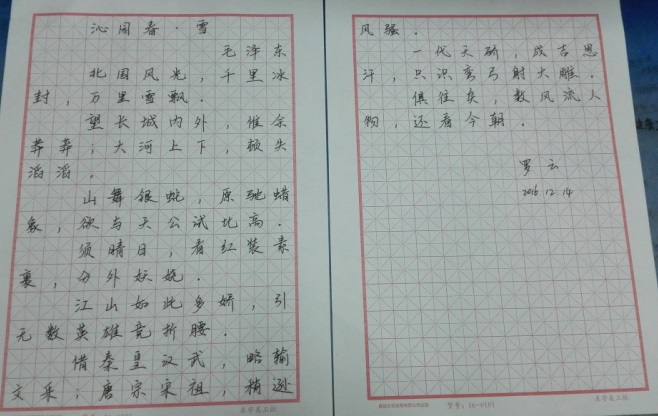 沁园春·雪
毛泽东
北国风光，千里冰
封，万里雪飘.
望长城内外，惟余
莽莽；大河上下，顿失
滔滔.
山舞银蛇，原驰蜡
象，欲与天公试比高.
须晴日，看红装素
裹，分外妖娆.
江山如此多娇，引
无数英雄竞折腰.
惜秦皇汉武，略输
文采；唐宗宋祖，稍逊
风骚.
一代天骄，成吉思
汗，只识弯弓射大雕.
俱往矣，数风流人
物，还看今朝.
罗云
2016.12.14